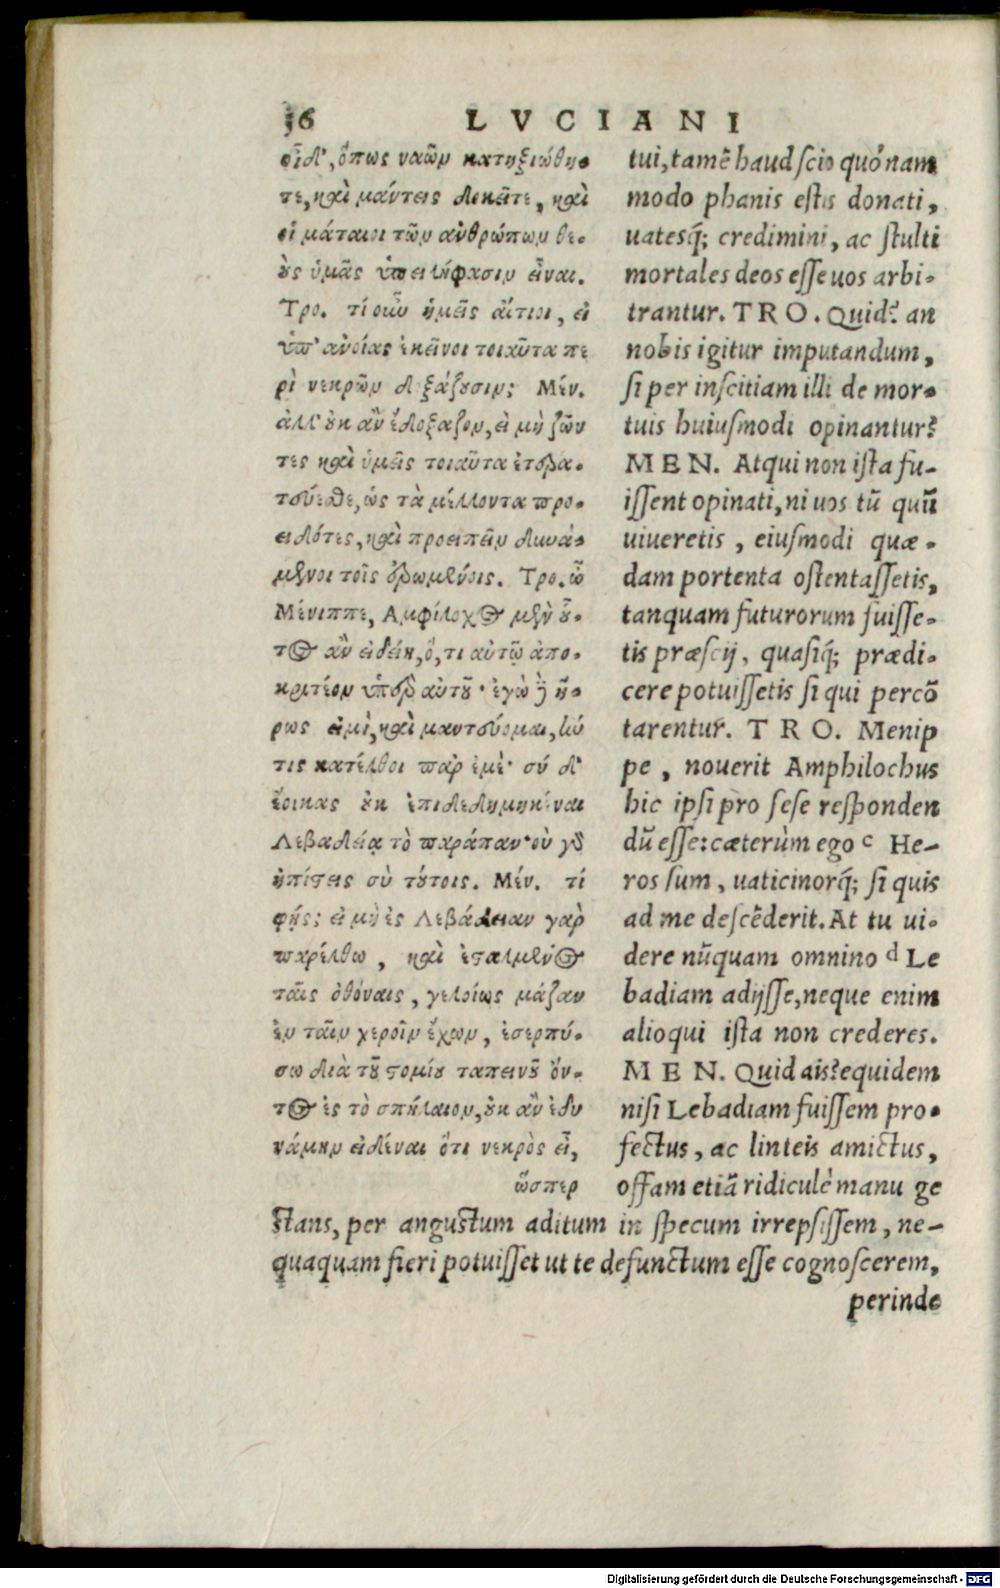 36 LVCIANI
οἶδ', ὅπως ναῶν κατηξιώθη-
τε, καὶ μάντεις δοκεῖτε, καὶ
οἱ μάταιοι τῶν ἀνθρώπων θε-
οὺς ὑμᾶς ὑπειλήφασιν εἶναι.
Τρο. τί οὖν ἡμεῖς αἴτιοι, εἰ
ὑπ' ἀνοίας ἐκεῖνοι τοιαῦτα πε
ρὶ νεκρῶν δοξάζουσιν; Μέν.
ἀλλ' οὐκ ἂν ἐδόξαζον, εἰ μὴ ζῶν
τες καὶ ὑμεῖς τοιαῦτα ἐτερα-
τεύεσθε, ὡς τὰ μέλλοντα προ-
ειδότες, καὶ προειπεῖν δυνά-
μενοι τοῖς ἐρωμένοις. Τρο. ὦ
Μένιππε, Αμφίλοχος μὲν οὗ-
τος ἂν εἰδείη, ὅ, τι αὐτῷ ἀπο-
κριτέον ὑπὲρ αὐτοῦ· ἐγὼ δὲ ἥ-
ρως εἰμὶ, καὶ μαντεύομαι, ἤν
τις κατέλθοι παρ' ἐμέ· σύ δ'
ἔοικας οὐκ ἐπιδεδημηκέναι
Λεβαδείᾳ τὸ παράπαν· οὐ γὰρ
ἠπίστεις σὺ τούτοις. Μέν. τί
φῄς; εἰ μὴ ἐς Λεβάδειαν γὰρ
παρέλθω, καὶ ἐσταλμένος
ταῖς ὀθόναις, γελοίως μάζαν
ἐν ταῖν χεροῖν ἔχων, ἐσερπύ-
σω διὰ τοῦ στομίου ταπεινοῦ ὄν-
τος ἐς τὸ σπήλαιον, οὐκ ἂν ἐδυ
νάμην εἰδέναι ὅτι νεκρὸς εἶ,
ὥσπερ
tui, tamẽ haud scio quónam
modo phanis estis donati,
uatesq́; credimini, ac stulti
mortales deos esse uos arbi-
trantur. TRO. Quid? an
nobis igitur imputandum,
si per inscitiam illi de mor-
tuis huiusmodi opinantur?
MEN. Atqui non ista fu-
issent opinati, ni uos tũ quũ
uiueretis, eiusmodi quæ-
dam portenta ostentassetis,
tanquam futurorum fuisse-
tis præscij, quasiq́; prædi-
cere potuissetis si qui percõ
tarentur. TRO. Menip
pe, nouerit Amphilochus
hic ipsi pro sese responden
dũ esse: cæterùm ego c He-
ros sum, uaticinorq́; si quis
ad me descẽderit. At tu ui-
dere nũquam omnino d Le
badiam adijsse, neque enim
alioqui ista non crederes.
MEN. Quid ais? equidem
nisi Lebadiam fuissem pro-
fectus, ac linteis amictus,
offam etiã ridiculè manu ge
stans, per angustum aditum in specum irrepsissem, ne-
quaquam fieri potuisset ut te defunctum esse cognoscerem,
perinde
Digitalisierung gefördert durch die Deutsche Forschungsgemeinschaft - DFG